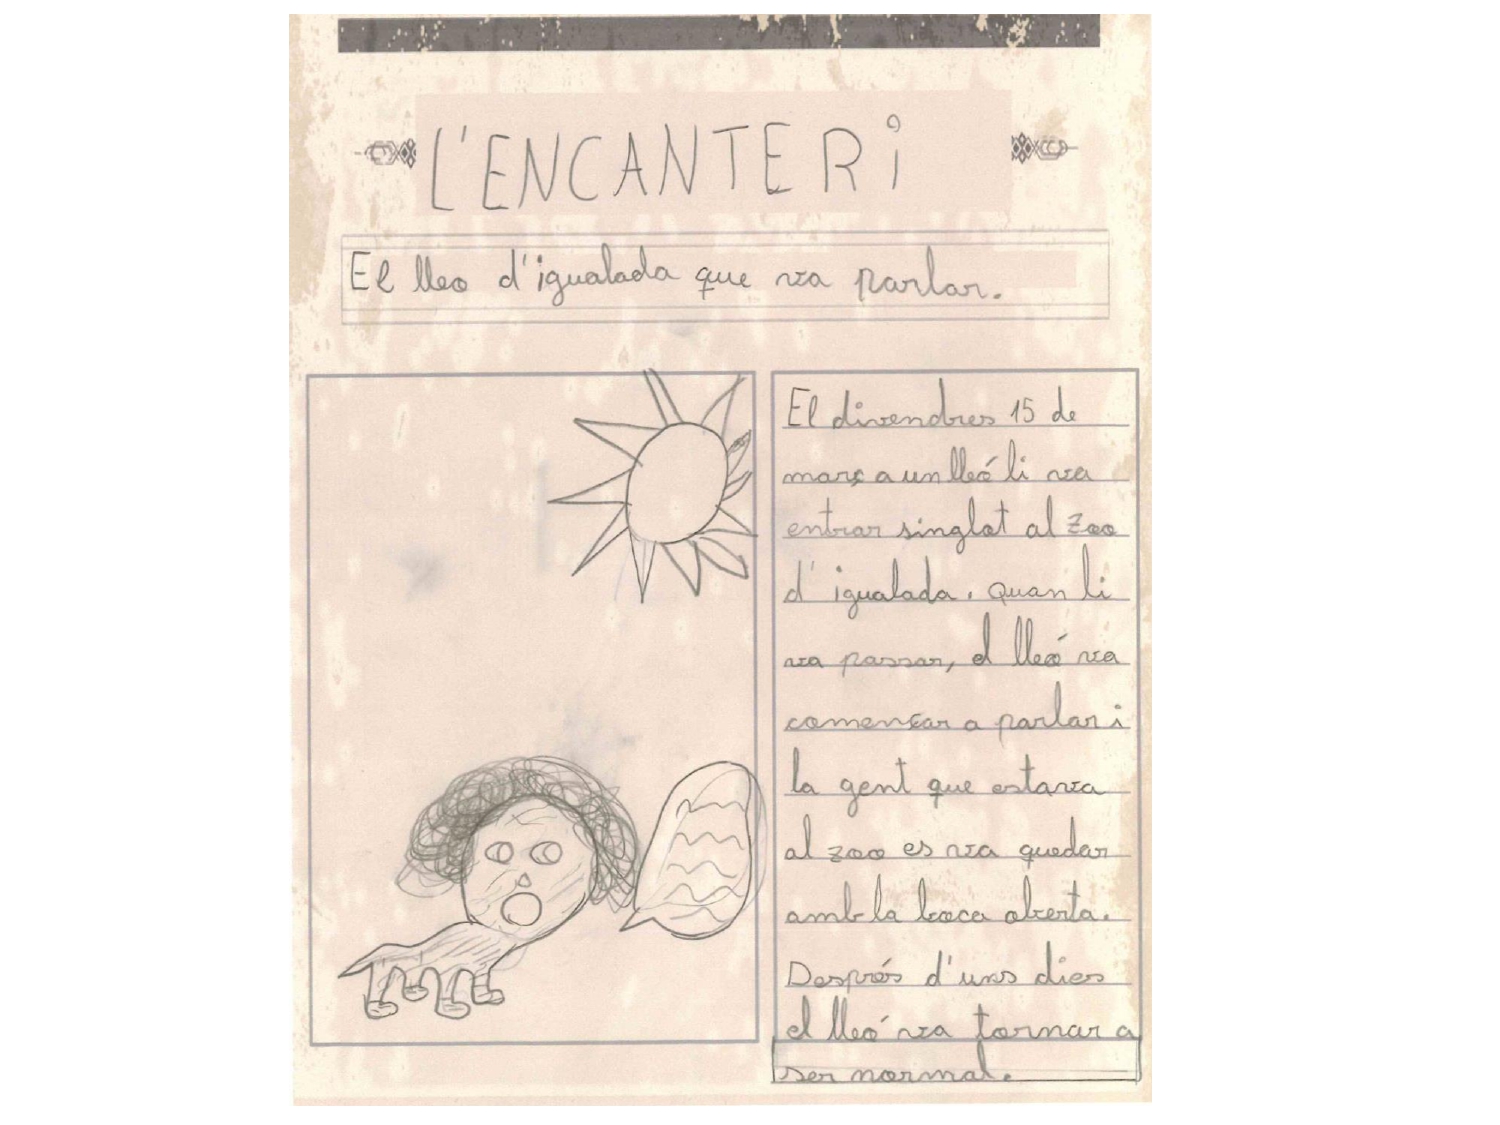 L'ENCANTERi
El lleo d'igualada que va parlar.
El divendres 15 de
març a un lleó li va
entrar singlot al zoo
d'igualada. Quan li
va passar, el lleó va
començar a parlar i
la gent que estava
al zoo es va quedar
amb la boca oberta.
Després d'uns dies
el lleó va tornar a
ser normal.